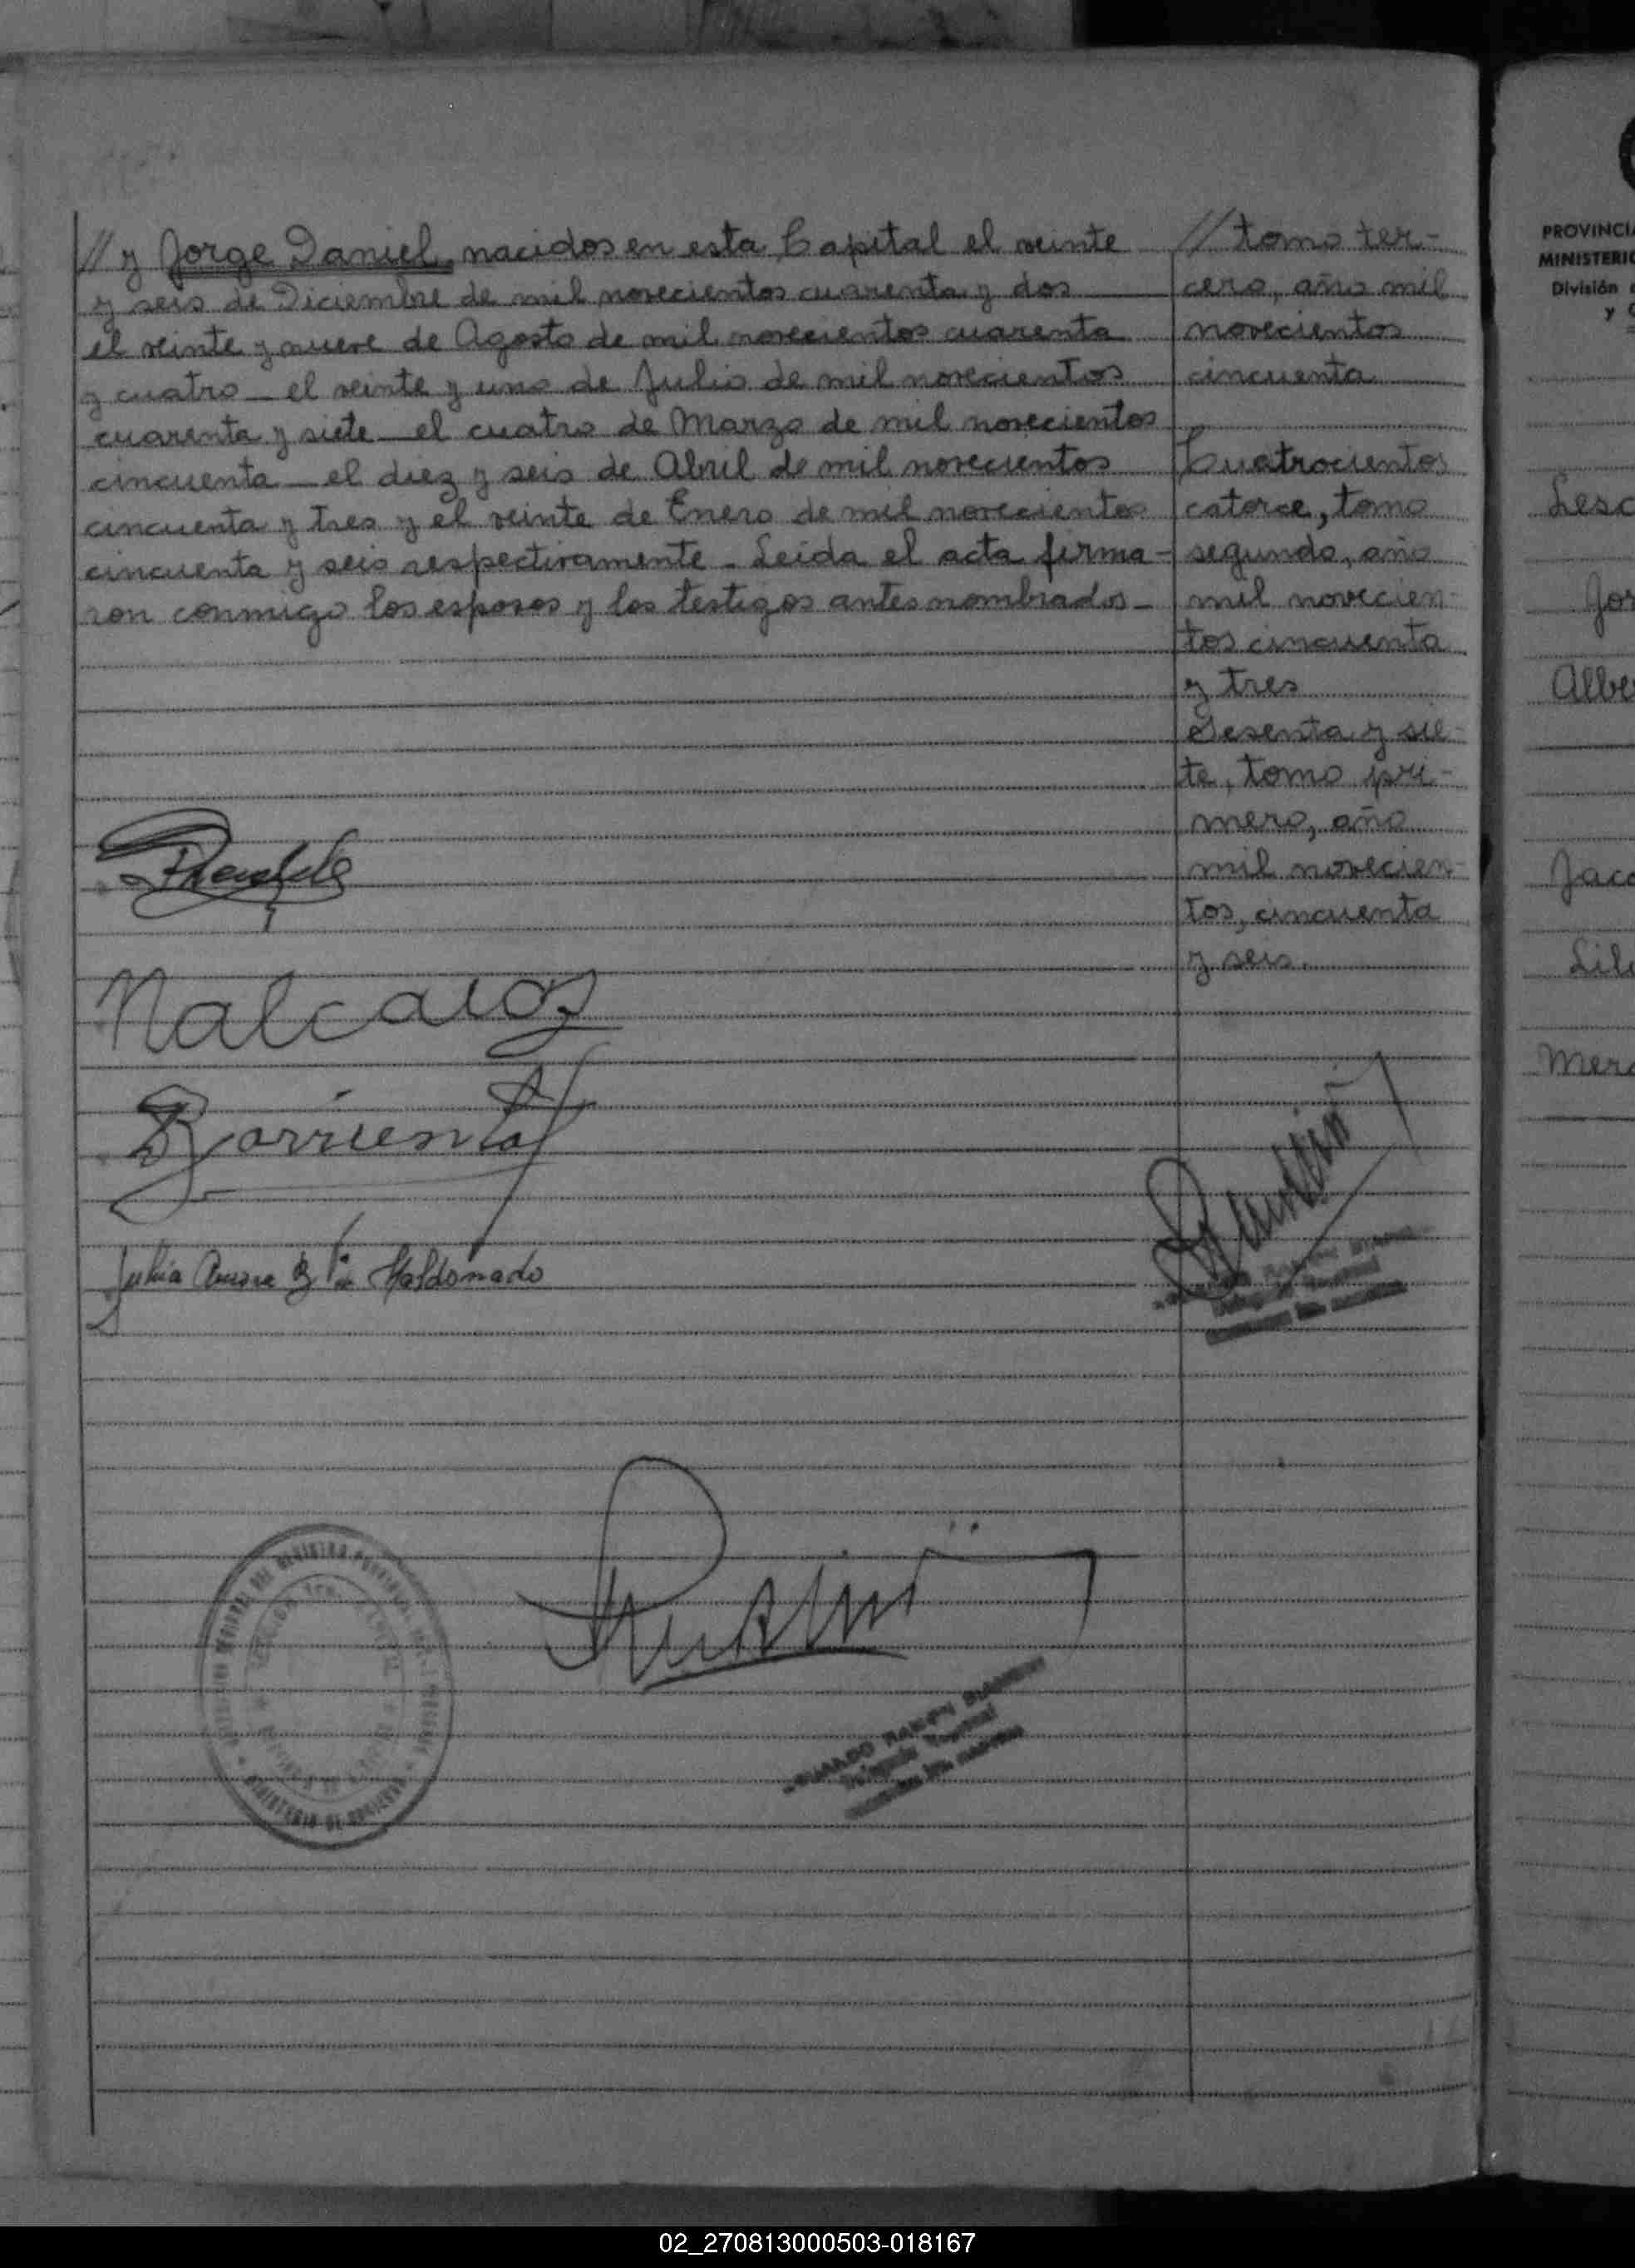 // y Jorge Daniel, nacidos en esta Capital el veinte
y seis de Diciembre de mil novecientos cuarenta y dos
el veinte y nueve de Agosto de mil novecientos cuarenta
y cuatro _ el veinte y uno de Julio de mil novecientos
cuarenta y siete _ el cuatro de Marzo de mil novecientos
cincuenta _ el diez y seis de Abril de mil novecientos
cincuenta y tres y el veinte de Enero de mil novecientos
cincuenta y seis respectivamente _ Leida el acta firma-
ron conmigo los esposos y los testigos antes nombrados _
// tomo ter-
cero, año mil
novecientos
cincuenta
Cuatrocientos
catorce, tomo
segundo, año
mil novecien-
tos cincuenta
y tres
Sesenta y sie-
te, tomo pri-
mero, año
mil novecien-
tos, cincuenta
y seis.
Julia Maldonado
RAMON
MINISTERIO DE GOBIERNO
PROVINCIA
MINISTERIO
División
y
Alber
Lesc
Jor
Jaco
Lil
Merc
02_270813000503-018167